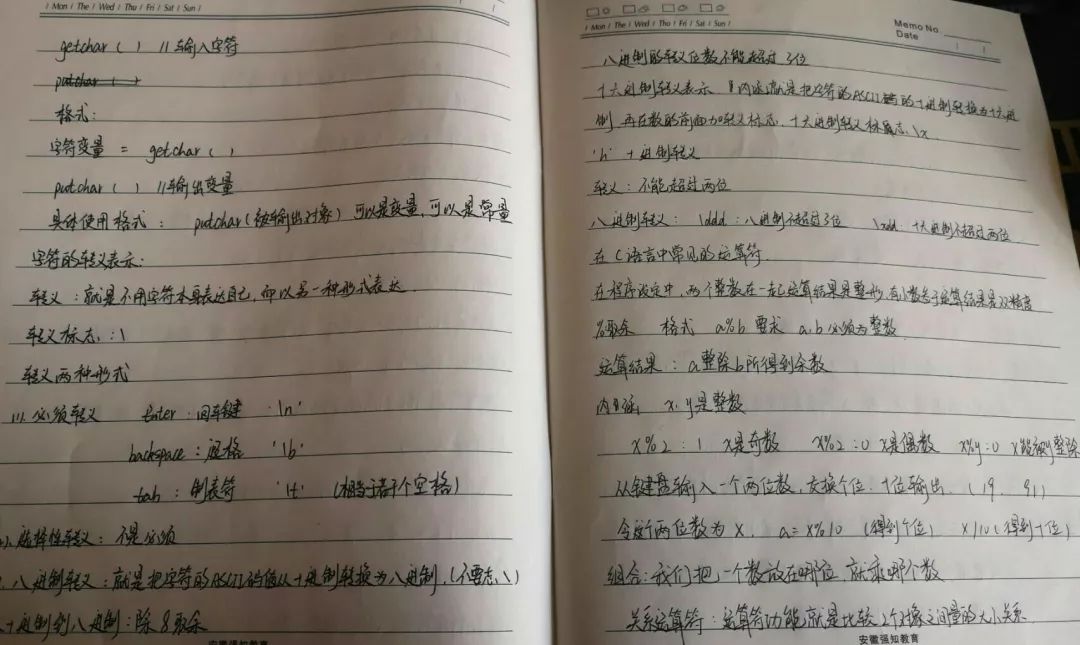 Mon / Tue / Wed / Thu / Fri / Sat / Sun
getchar ( ) //输入字符
putchar ( )
格式:
字符变量 = getchar ( )
putchar ( ) //输出变量
具体使用格式: putchar(被输出对象) 可以是变量,可以是常量
字符的转义表示:
转义:就是不用字符本身表达自己,而以另一种形式表达
转义标志:\
转义两种形式
(1).必须转义 Enter:回车键 '\n'
backspace:退格 '\b'
tab:制表符 '\t' (相当于若干个空格)
选择性转义:不是必须
八进制转义:就是把字符的ASCII码值从十进制转换为八进制,(不要忘\)
十进制到八进制:除8取余
安徽强知教育
Mon / Tue / Wed / Thu / Fri / Sat / Sun
Memo No.
Date
八进制的转义位数不能超过3位
十六进制转义表示 就是把字符的ASCII码的十进制转换为十六进
制,再在数的前面加转义标志,十六进制转义标志 \x
'h' 十进制转义
转义:不能超过两位
八进制转义: \ddd:八进制不超过3位 \xdd:十六进制不超过两位
在C语言中常见的运算符
在程序设定中,两个整数在一起运算结果是整形,有小数参与运算结果是双精度
%取余 格式 a%b 要求 a,b必须为整数
运算结果:a整除b所得到余数
x,y是整数
x%2:1 x是奇数 x%2:0 x是偶数 x%y:0 x能被y整除
从键盘输入一个两位数,交换个位、十位输出.(19. 91)
令这个两位数为x. a=x%10 (得到个位) x/10(得到十位)
组合:我们把一个数放在哪位 就乘哪个数
关系运算符:运算符功能就是比较2个对象之间量的大小关系
安徽强知教育